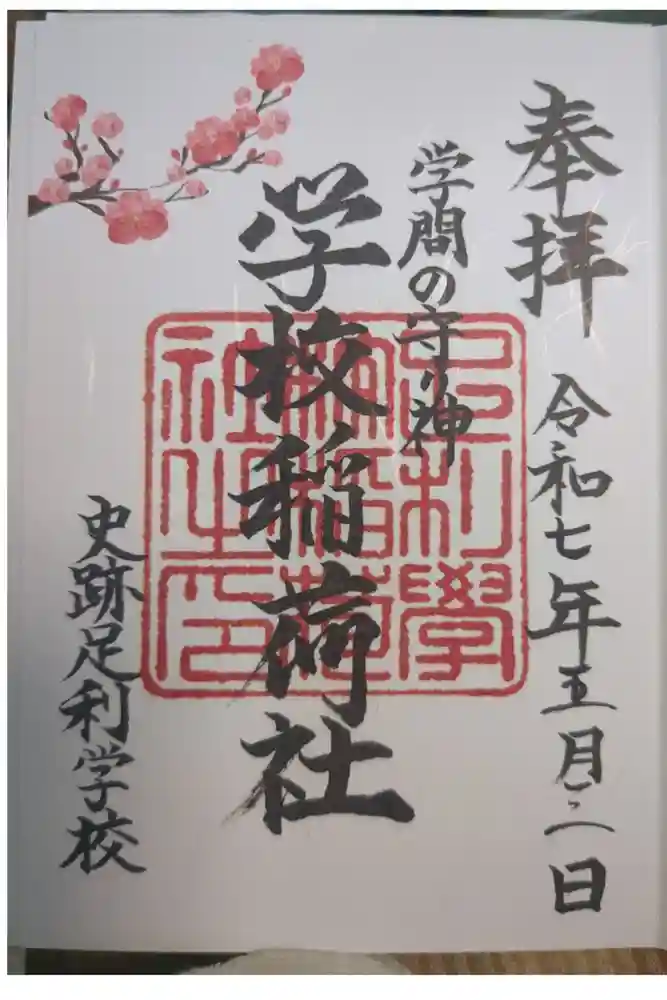 奉拝 令和七年五月二日
学問の守り神
学校稲荷社
史跡足利学校
足利學
校稲荷
社之印